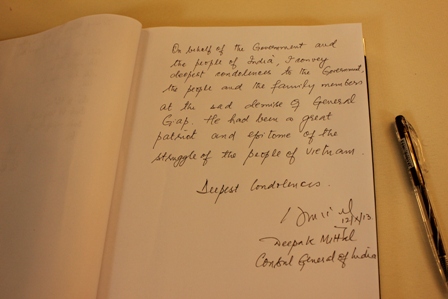 On behalf of the Government and
the people of India, I convey
deepest condolences to the Government,
the people and the family members
at the sad demise of General
Giap. He had been a great
patriot and epitome of the
struggle of the people of Vietnam.
Deepest Condolences.
12/X/13
Deepak Mittal
Consul General of India